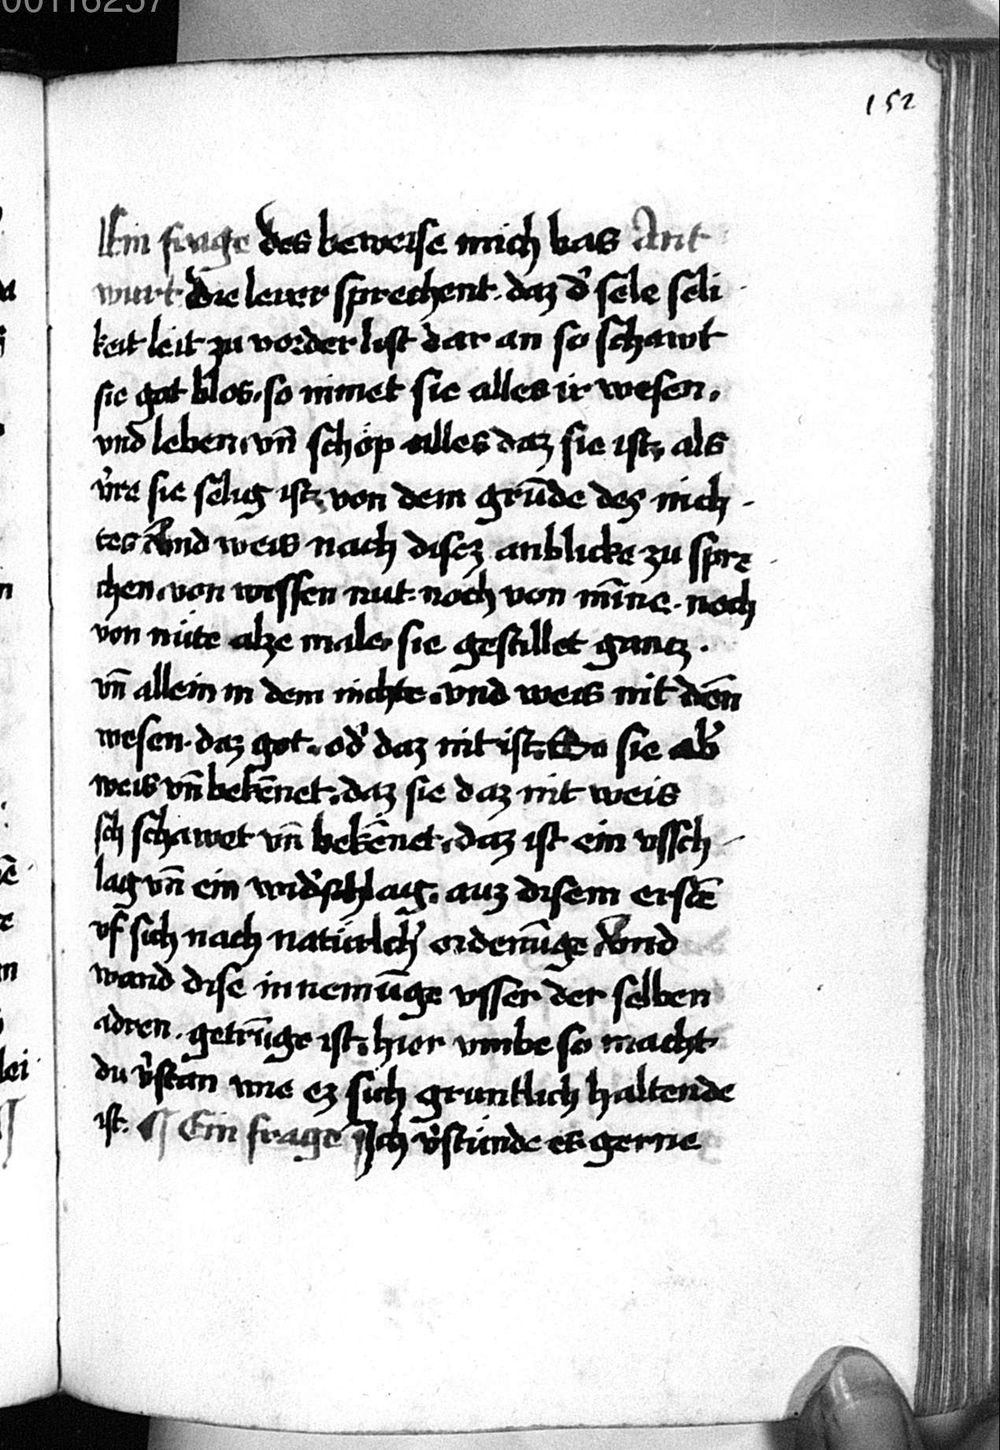 00116257
152
Ein frage des beweise mich bas Ant
wurt Die lerer sprechent. daz d' sele seli
keit leit zu vorderlist dar an so schawt
sie got blos. so nimet sie alles ir wesen.
vnd leben. vn̄ schöp alles daz sie ist. als
v're sie selig ist. von dem grūde des nich-
tes Vnd weis nach disez anblicke zu spre
chen. von wissen nut. noch von mīne. noch
von nüte alze male. sie gestillet gantz.
vn̄ allein in dem nichte. vnd weis nit dēn
wesen. daz got. od' daz nit ist. So sie ab'
weis vn̄ bekēnet. daz sie daz nit weis
sch schawet vn̄ bekēnet. daz ist ein vssch-
lag vn̄ ein wid'schlag. auz disem erstē
vf sich nach natürlch' ordenūge Vnd
wand dise innemūge vsser der selben
adren. getrūge ist. hier vmbe so macht
du v'stan wie ez sich gruntlich haltende
ist. ¶ Ein frage Ich v'stünde es gerne